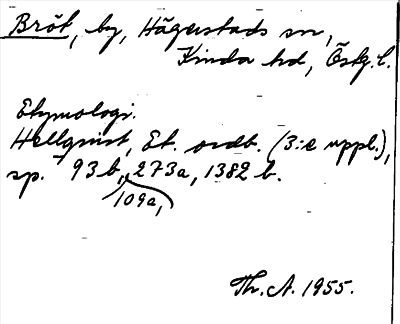 Bröt, by, Hägerstads sn,
Kinda hd, Östg. l.
Etymologi.
Hellquist, Et. ordb. (3:e uppl.),
sp. 93 b, 273a, 1382 b.
109a,
Th. A. 1955.